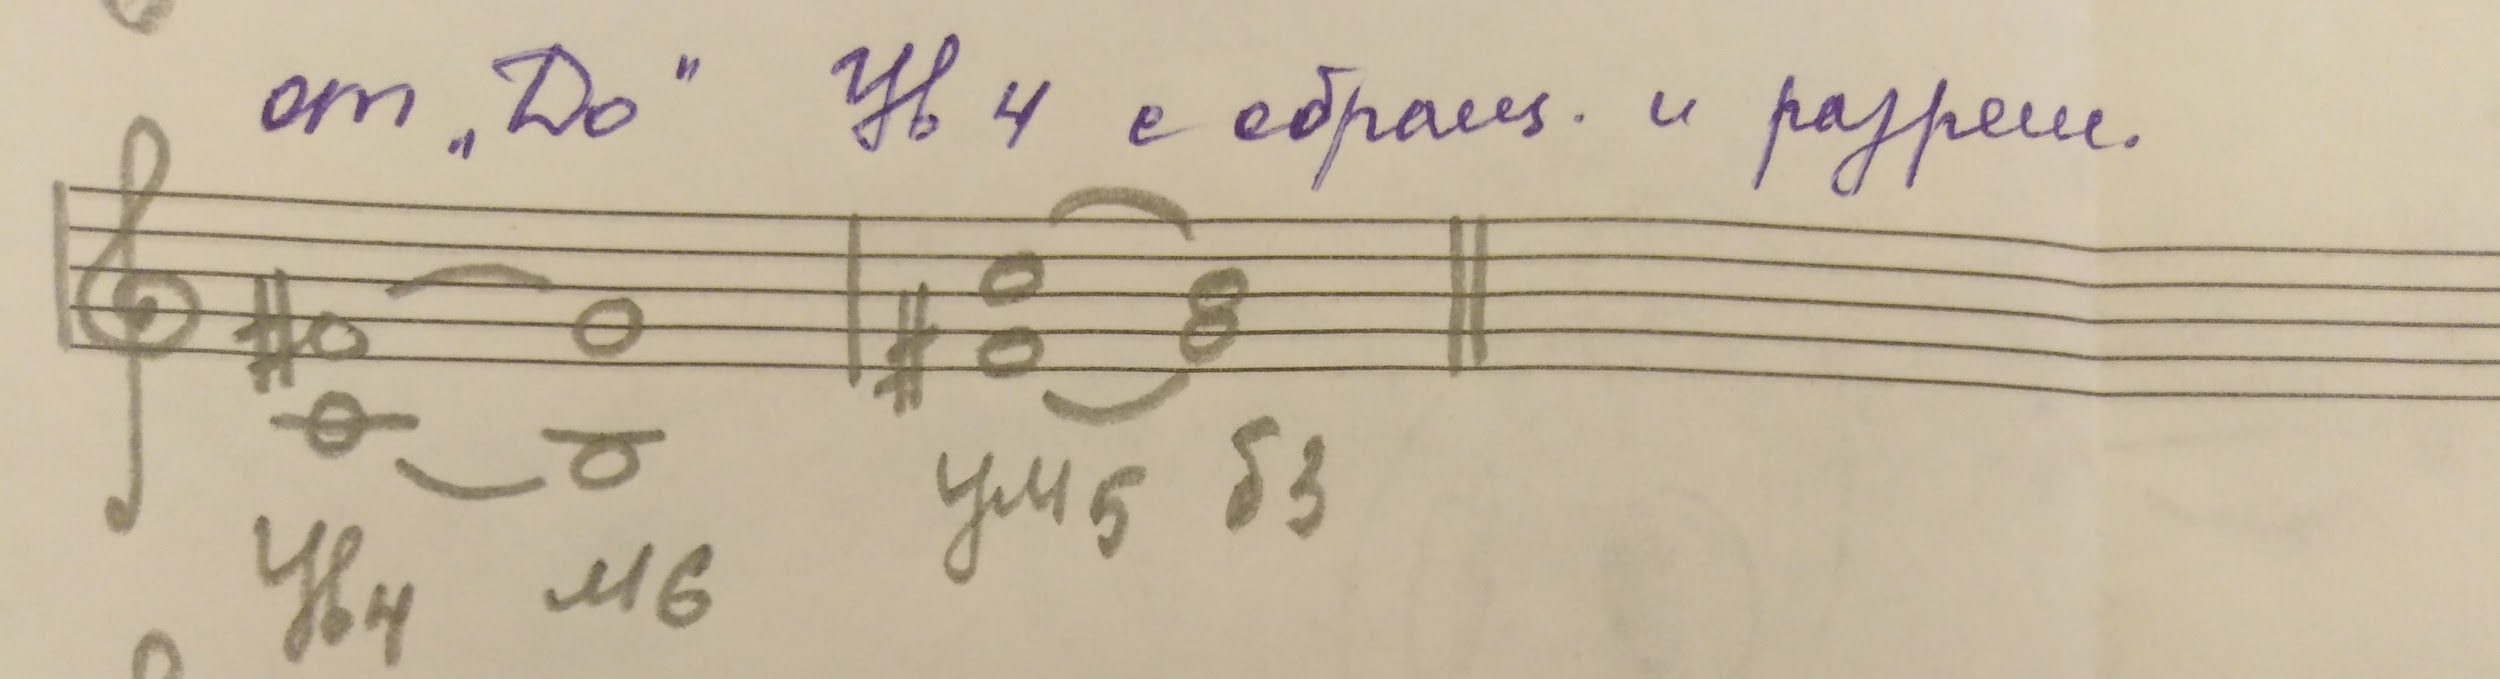 от „До" Ув 4 с обращ. и разреш.
Ув4 м6 ум5 б3